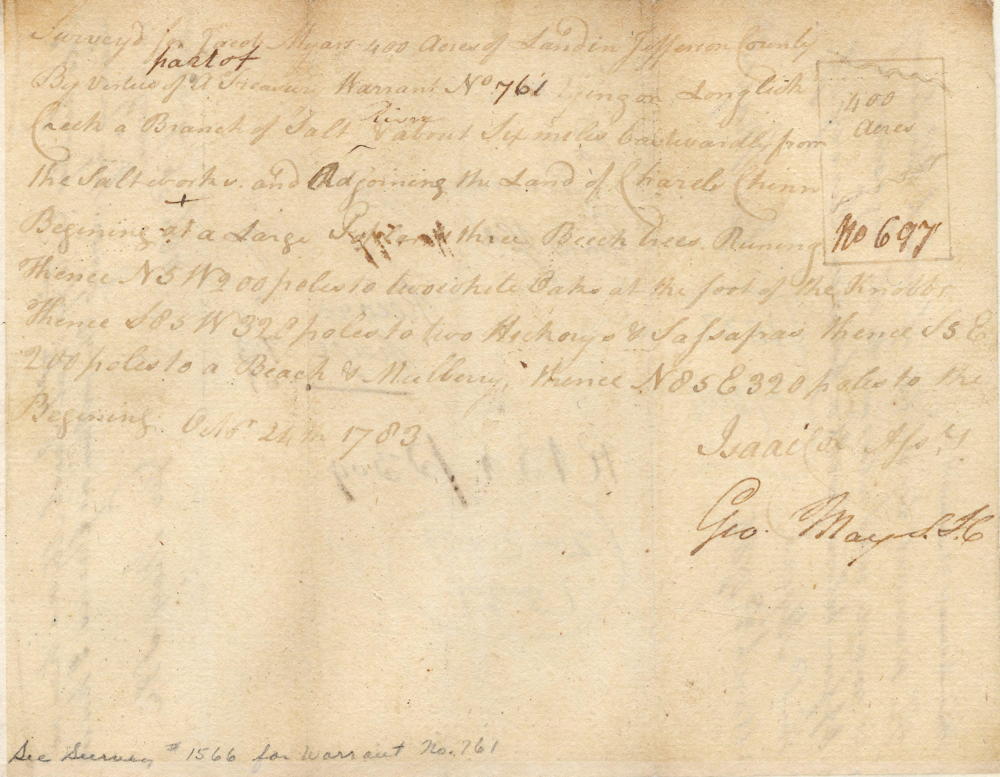 Survey'd for Jacob Myars 400 Acres of Land in Jefferson County
part of
By Virtue of A Treasury Warrant No 761 Lying on Longlick
River
Creek a Branch of Salt about Six miles Eastwardly from
the Salt works and Adjoining the Land of Charels Chinn
Begining at a Large Poplar & three Beech trees. Runing
Thence N5W 200 poles to two white Oaks at the foot of the Knobbs
Thence S85W 320 poles to two Hickorys & Sassafras thence S5E
200 poles to a Beach & Mulberry, thence N85E 320 poles to the
Begining. Octor 24th 1783
400
Acres
No 697
Isaac Cox Asst
Geo. May S.J.C
See Survey # 1566 for Warrant No. 761